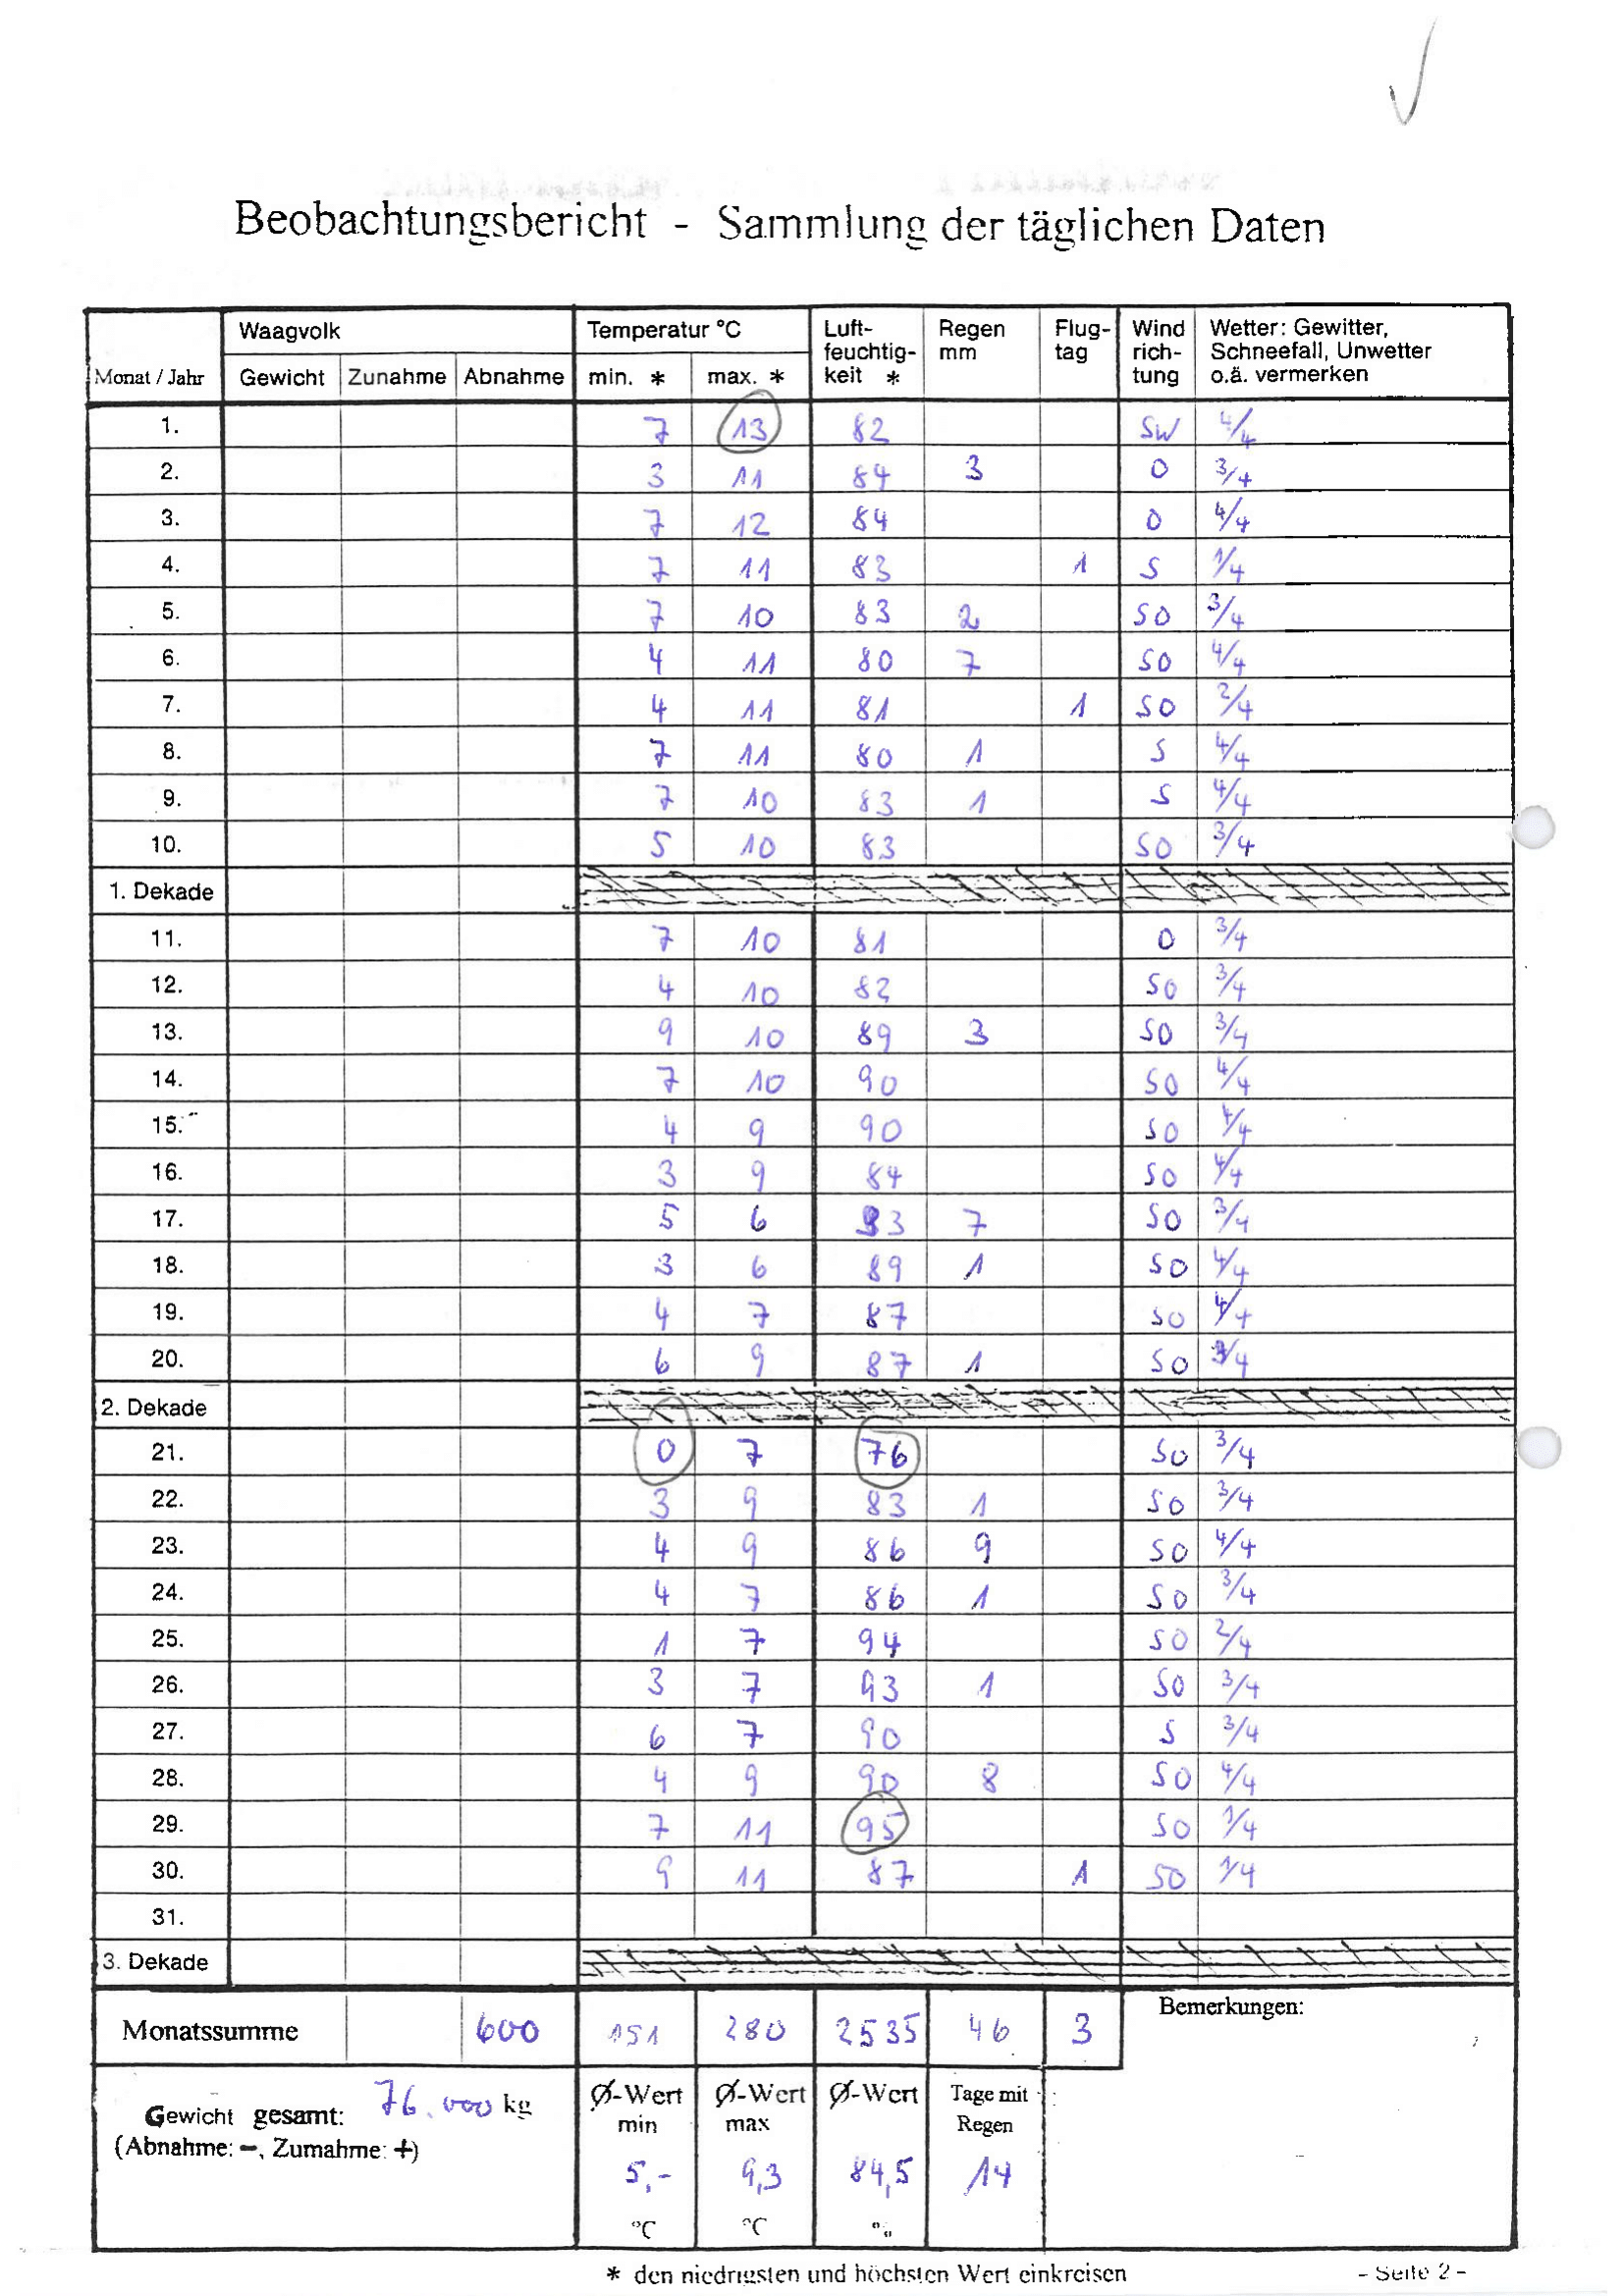 Beobachtungsbericht - Sammlung der täglichen Daten
Monat / Jahr Waagvolk Temperatur °C Luft- feuchtig- keit * Regen mm Flug- tag Wind rich- tung Wetter: Gewitter, Schneefall, Unwetter o.ä. vermerken
Gewicht Zunahme Abnahme min. * max. *
1. 7 13 82 SW 4/4
2. 3 11 84 3 O 3/4
3. 7 12 84 O 4/4
4. 7 11 83 1 S 1/4
5. 7 10 83 2 SO 3/4
6. 4 11 80 7 SO 4/4
7. 4 11 81 1 SO 2/4
8. 7 11 80 1 S 4/4
9. 7 10 83 1 S 4/4
10. 5 10 83 SO 3/4
1. Dekade
11. 7 10 81 O 3/4
12. 4 10 82 SO 3/4
13. 9 10 89 3 SO 3/4
14. 7 10 90 SO 4/4
15. 4 9 90 SO 4/4
16. 3 9 84 SO 4/4
17. 5 6 83 7 SO 3/4
18. 3 6 89 1 SO 4/4
19. 4 7 87 SO 4/4
20. 6 9 87 1 SO 3/4
2. Dekade
21. 0 7 76 SO 3/4
22. 3 9 83 1 SO 3/4
23. 4 9 86 9 SO 4/4
24. 4 7 86 1 SO 3/4
25. 1 7 94 SO 2/4
26. 3 7 93 1 SO 3/4
27. 6 7 90 S 3/4
28. 4 9 90 8 SO 4/4
29. 7 11 95 SO 1/4
30. 9 11 87 1 SO 1/4
31.
3. Dekade
Monatssumme 600 151 280 2535 46 3 Bemerkungen:
Gewicht gesamt: 76.000 kg
(Abnahme: -, Zumahme: +)
Ø-Wert min 5,- °C
Ø-Wert max 9,3 °C
Ø-Wert 84,5 %
Tage mit Regen 14
* den niedrigsten und höchsten Wert einkreisen - Seite 2 -